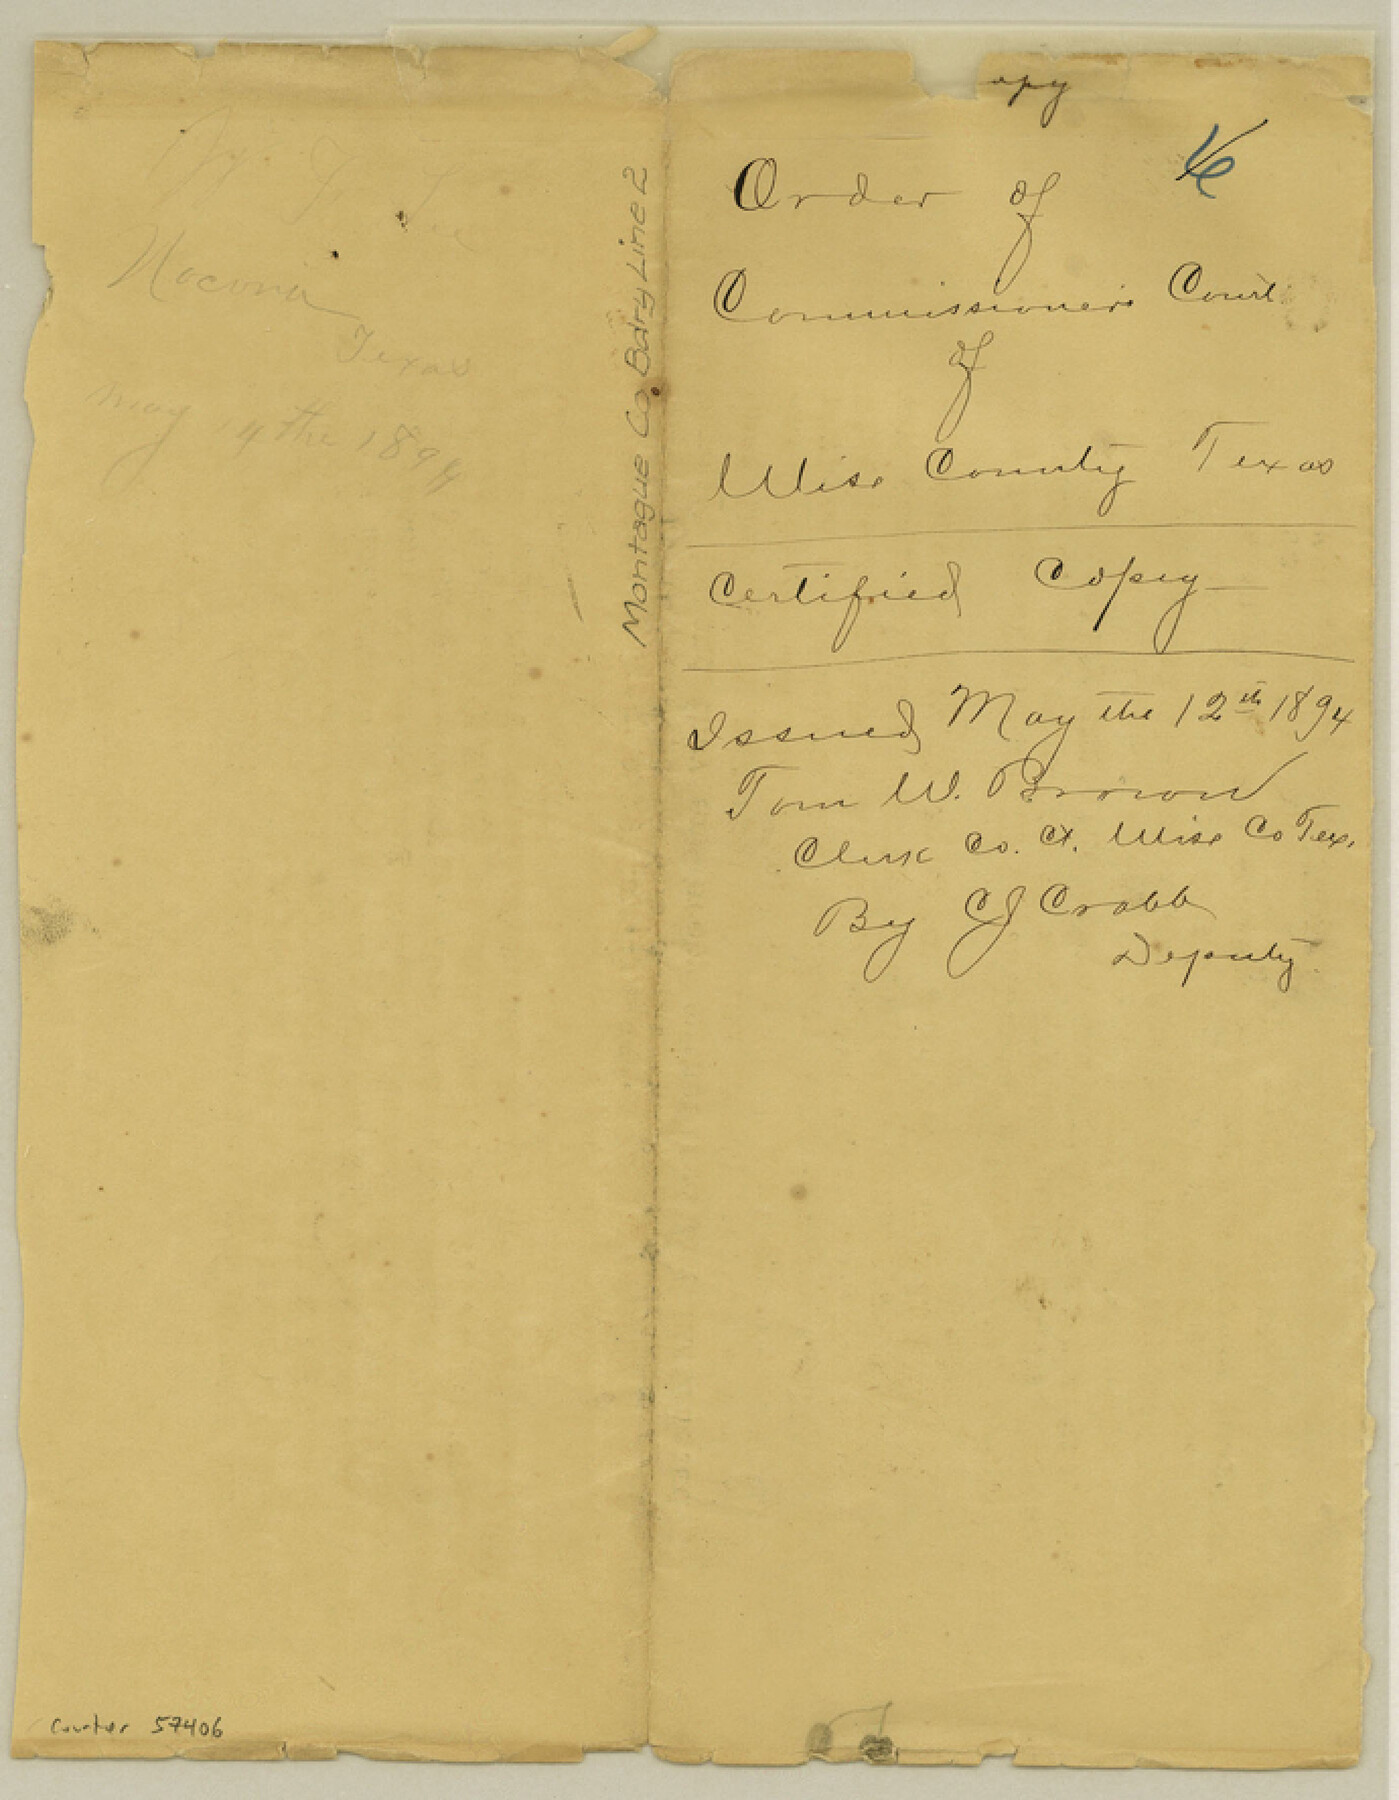 Nocona
Texas
May 14 the 1894
Montague Co. Bdry Line 2
counter 57406
opy
Order of
Commissioners Court
of
Wise County Texas
Certified Copey
Issued May the 12th 1894
Tom W. Brown
Clerk Co. Ct. Wise Co Tex.
By CJ Crabb
Deputy